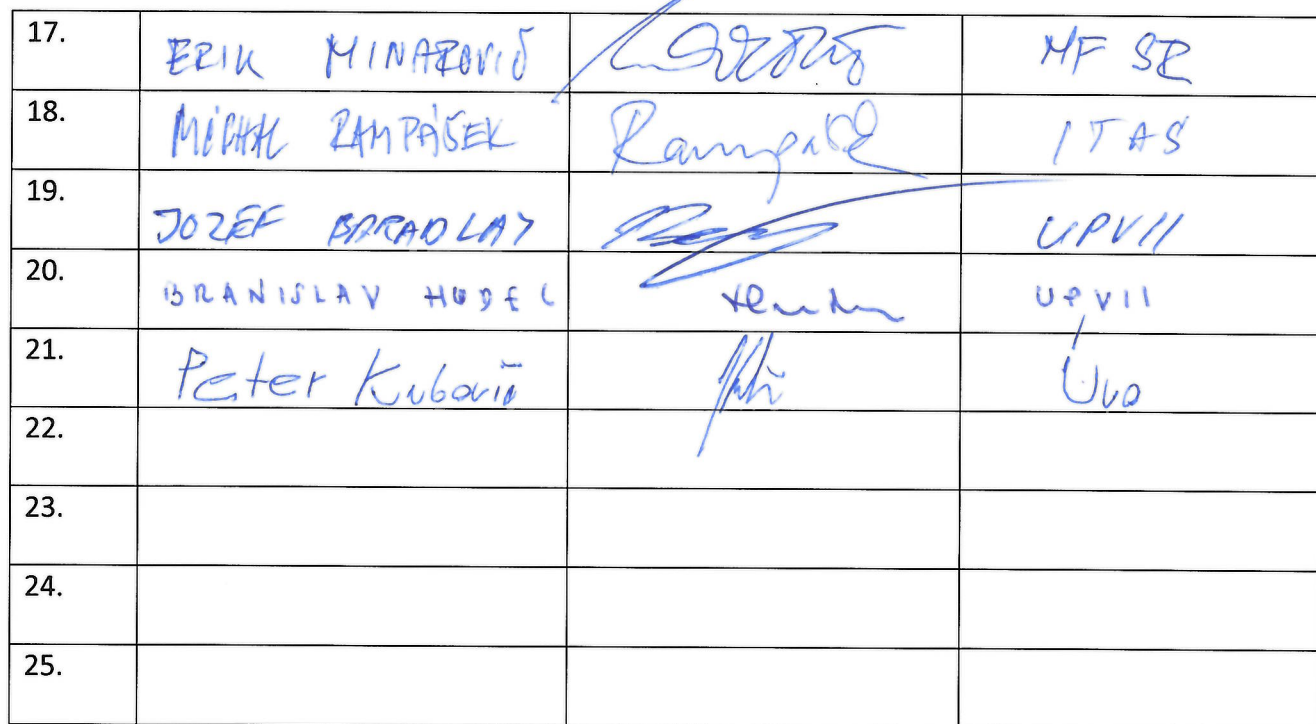 17. ERIK MINAROVIČ MF SR
18. MICHAL RAMPÁŠEK Rampášek ITAS
19. JOZEF BARADLAY UPVII
20. BRANISLAV HUDEC UPVII
21. Peter Kubovič ÚVO
22.
23.
24.
25.